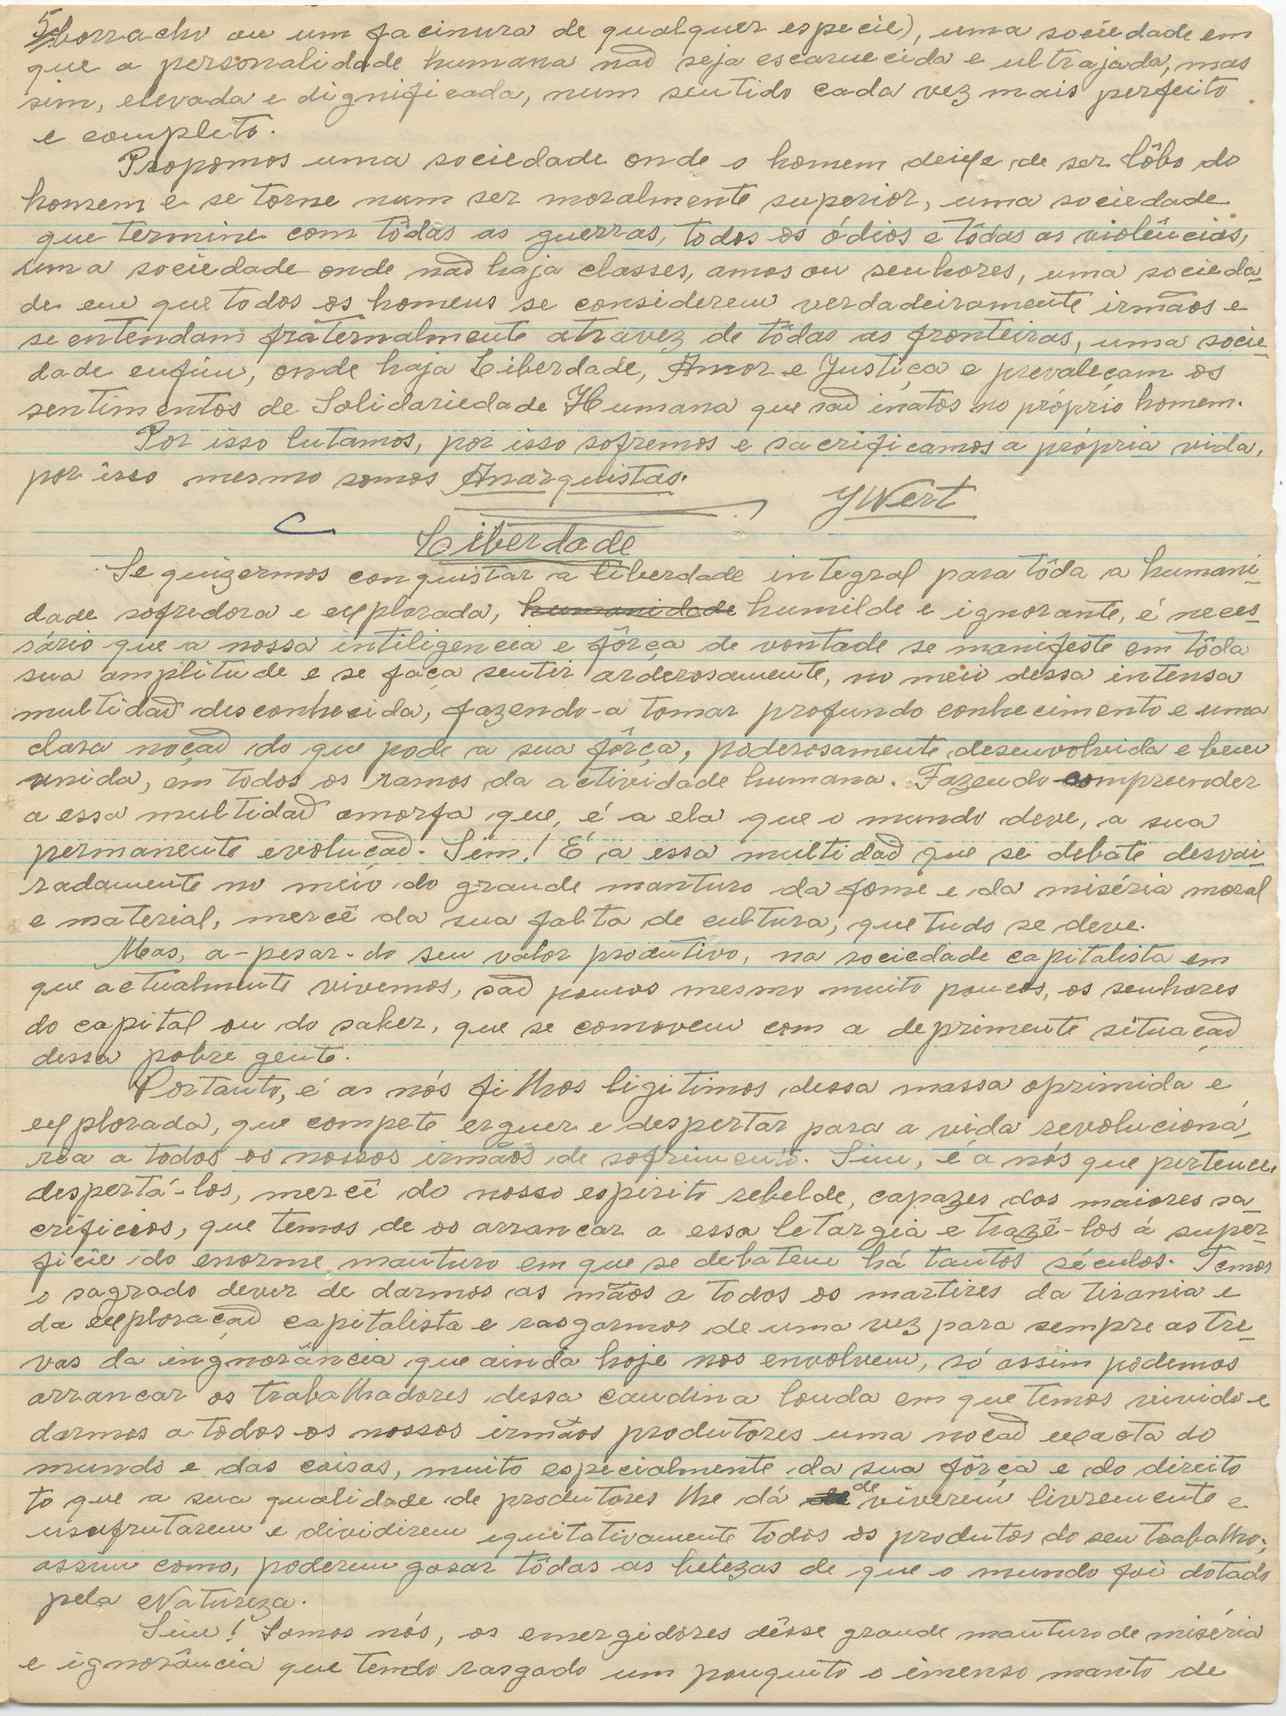 5 borracho ou um facinura de qualquer especie), uma sociedade em
que a personalidade humana naõ seja escarnecida e ultrajada, mas
sim, elevada e dignificada, num sentido cada vez mais perfeito
e completo.
Propomos uma sociedade onde o homem deixe de ser lôbo do
homem e se torne num ser moralmente superior, uma sociedade
que termine com tôdas as guerras, todos os ódios e tôdas as violências,
uma sociedade onde naõ haja classes, amos ou senhores, uma socieda-
de em que todos os homens se considerem verdadeiramente irmãos e
se entendam fraternalmente atravez de tôdas as fronteiras, uma socie-
dade enfim, onde haja Liberdade, Amor e Justiça e prevaleçam os
sentimentos de Solidariedade Humana que saõ inatos no proprio homem.
Por isso lutamos, por isso sofremos e sacrificamos a própria vida,
por isso mesmo somos Anarquistas.
YWert
Liberdade
Se quizermos conquistar a liberdade integral para tôda a humani-
dade sofredora e explorada, humanidade humilde e ignorante, é neces-
sário que a nossa intiligencea e fôrça de vontade se manifeste em tôda
sua amplitude e se faça sentir arderosamente, no meio dessa intensa
multidaõ desconhecida, fazendo-a tomar profundo conhecimento e uma
clara noçaõ do que pode a sua fôrça, poderosamente desenvolvida e bem
unida, em todos os ramos da actividade humana. Fazendo compreender
a essa multidaõ amorfa que, é a ela que o mundo deve, a sua
permanente evoluçaõ. Sim! É a essa multidaõ que se debate desvai-
radamente no meio do grande manturo da fome e da miséria moral
e material, mercê da sua falta de cultura, que tudo se deve.
Mas, a-pesar-do seu valor produtivo, na sociedade capitalista em
que actualmente vivemos, saõ poucos mesmo muito poucos, os senhores
do capital ou do saber, que se comovem com a deprimente situaçaõ
dessa pobre gente.
Portanto, é as nós filhos ligitimos dessa massa oprimida e
explorada, que compete erguer e despertar para a vida revolucioná-
rea a todos os nossos irmãos de sofrimento. Sim, é a nós que pertence
despertá-los, mercê do nosso espirito rebelde, capazes dos maiores sa-
crificios, que temos de os arrancar a essa letargia e trazê-los á super-
ficie do enorme manturo em que se debatem há tantos séculos. Temos
o sagrado dever de darmos as mãos a todos os martires da tirania e
da exploraçaõ capitalista e rasgarmos de uma vez para sempre as tre-
vas da ingnorância que ainda hoje nos envolvem, só assim podemos
arrancar os trabalhadores dessa caudina louda em que temos vivido e
darmos a todos os nossos irmãos produtores uma nocaõ exacta do
mundo e das coisas, muito especialmente da sua fôrça e do direito
to que a sua qualidade de produtores lhe dá de viverem livremente e
usufrutarem e dividirem equitativamente todos os produtos do seu trabalho;
assim como, poderem gosar tôdas as belezas de que o mundo foi dotado
pela Natureza.
Sim! Somos nós, os emergidores dêsse grande manturo de miséria
e ignorância que tendo rasgado um pouquito o imenso manto de